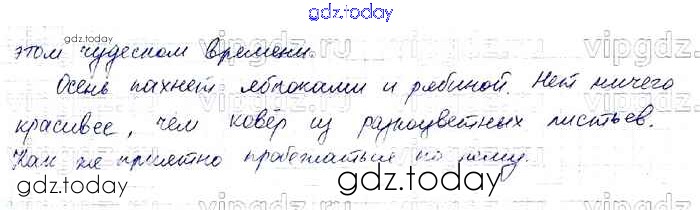 gdz.today
этом чудесном времени.
gdz.today vipgdz.
Осень пахнет яблоками и рябиной. Нет ничего
красивее, чем ковёр из разноцветных листьев.
Как же приятно пробежаться по нему.
gdz.today gdz.today
vipgdz. vipgdz.